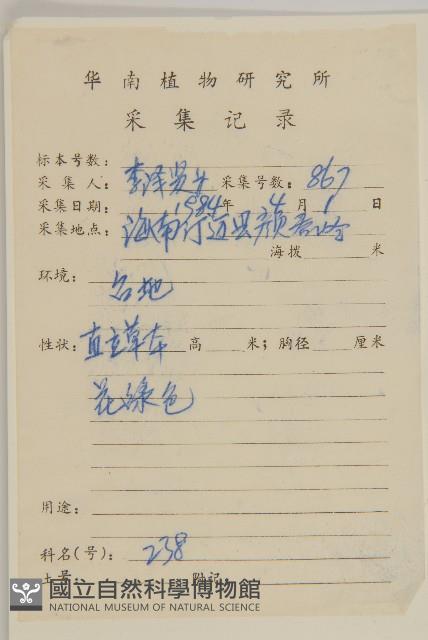 华南植物研究所
采集记录
标本号数:
采集人: 李泽贤 采集号数: 867
采集日期: 1984年 4月 1日
采集地点: 海南
海拨 米
环境:
台地
性状: 直立草本 高 米; 胸径 厘米
花绿色
用途:
科名(号): 238
土名: 附记:
國立自然科學博物館
NATIONAL MUSEUM OF NATURAL SCIENCE